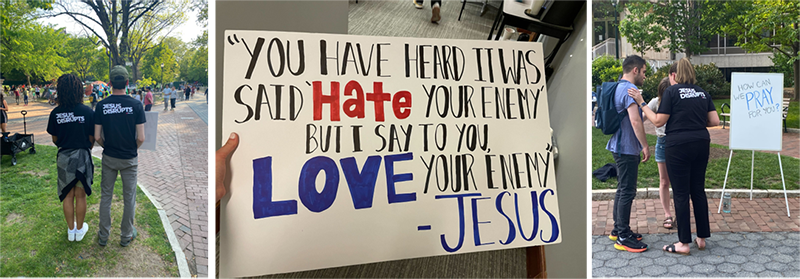 JESUS
DISRUPTS
JESUS
DISRUPTS
"YOU HAVE HEARD IT WAS
SAID 'Hate YOUR ENEMY'
BUT I SAY TO YOU,
LOVE YOUR ENEMY"
-JESUS
JESUS
DISRUPTS
HOW CAN
WE PRAY
FOR YOU?